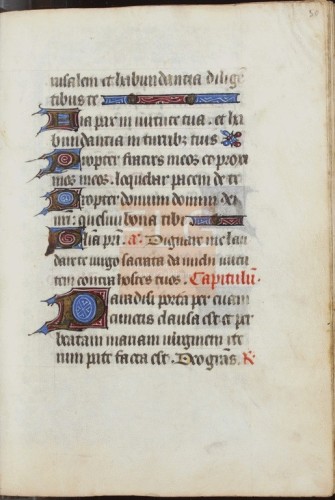 rusalem et habundantia dilige
tibus te
Fiat pax in virtute tua. et ha
bundantia in turribz tuis
Propter fratres meos et proxi
mos meos. loquebar pacem de te
Propter domum domini dei
nri: quesivi bona tibi
Glia pri. a. Dignare me lau
dare te virgo sacrata da michi virtu
tem contra hostes tuos. Capitulu.
Paradisi porta per evam
cunctis clausa est et per
beatam mariam virginem ite
rum pate facta est. Deo gras. R